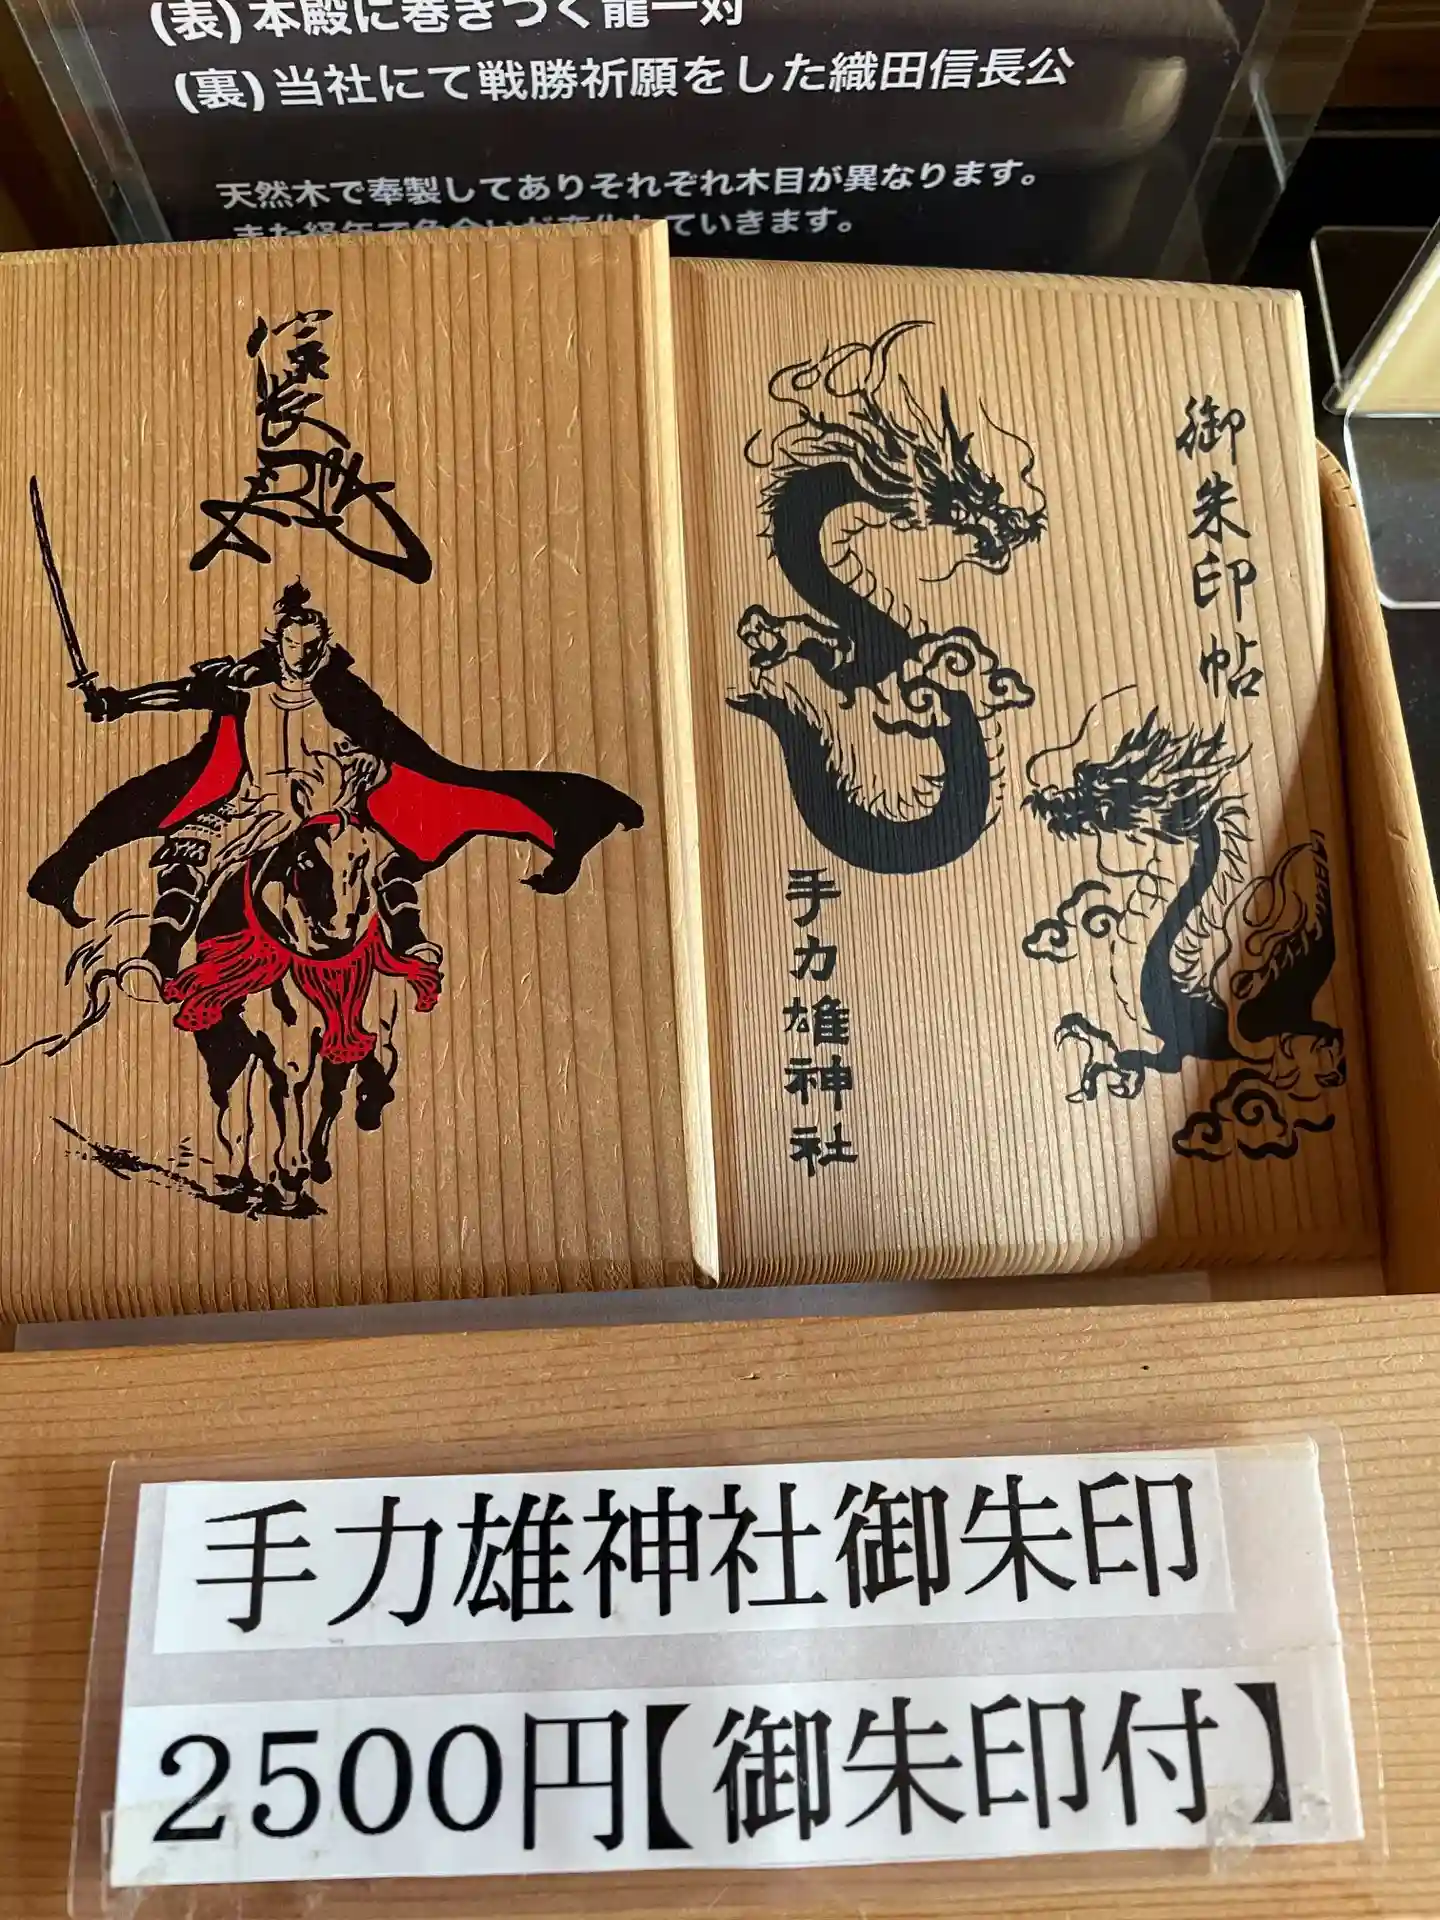 (表)本殿に巻きつく龍一対
(裏)当社にて戦勝祈願をした織田信長公
天然木で奉製してありそれぞれ木目が異なります。
また経年で色合いが変化していきます。
御朱印帖
手力雄神社
手力雄神社御朱印
2500円【御朱印付】